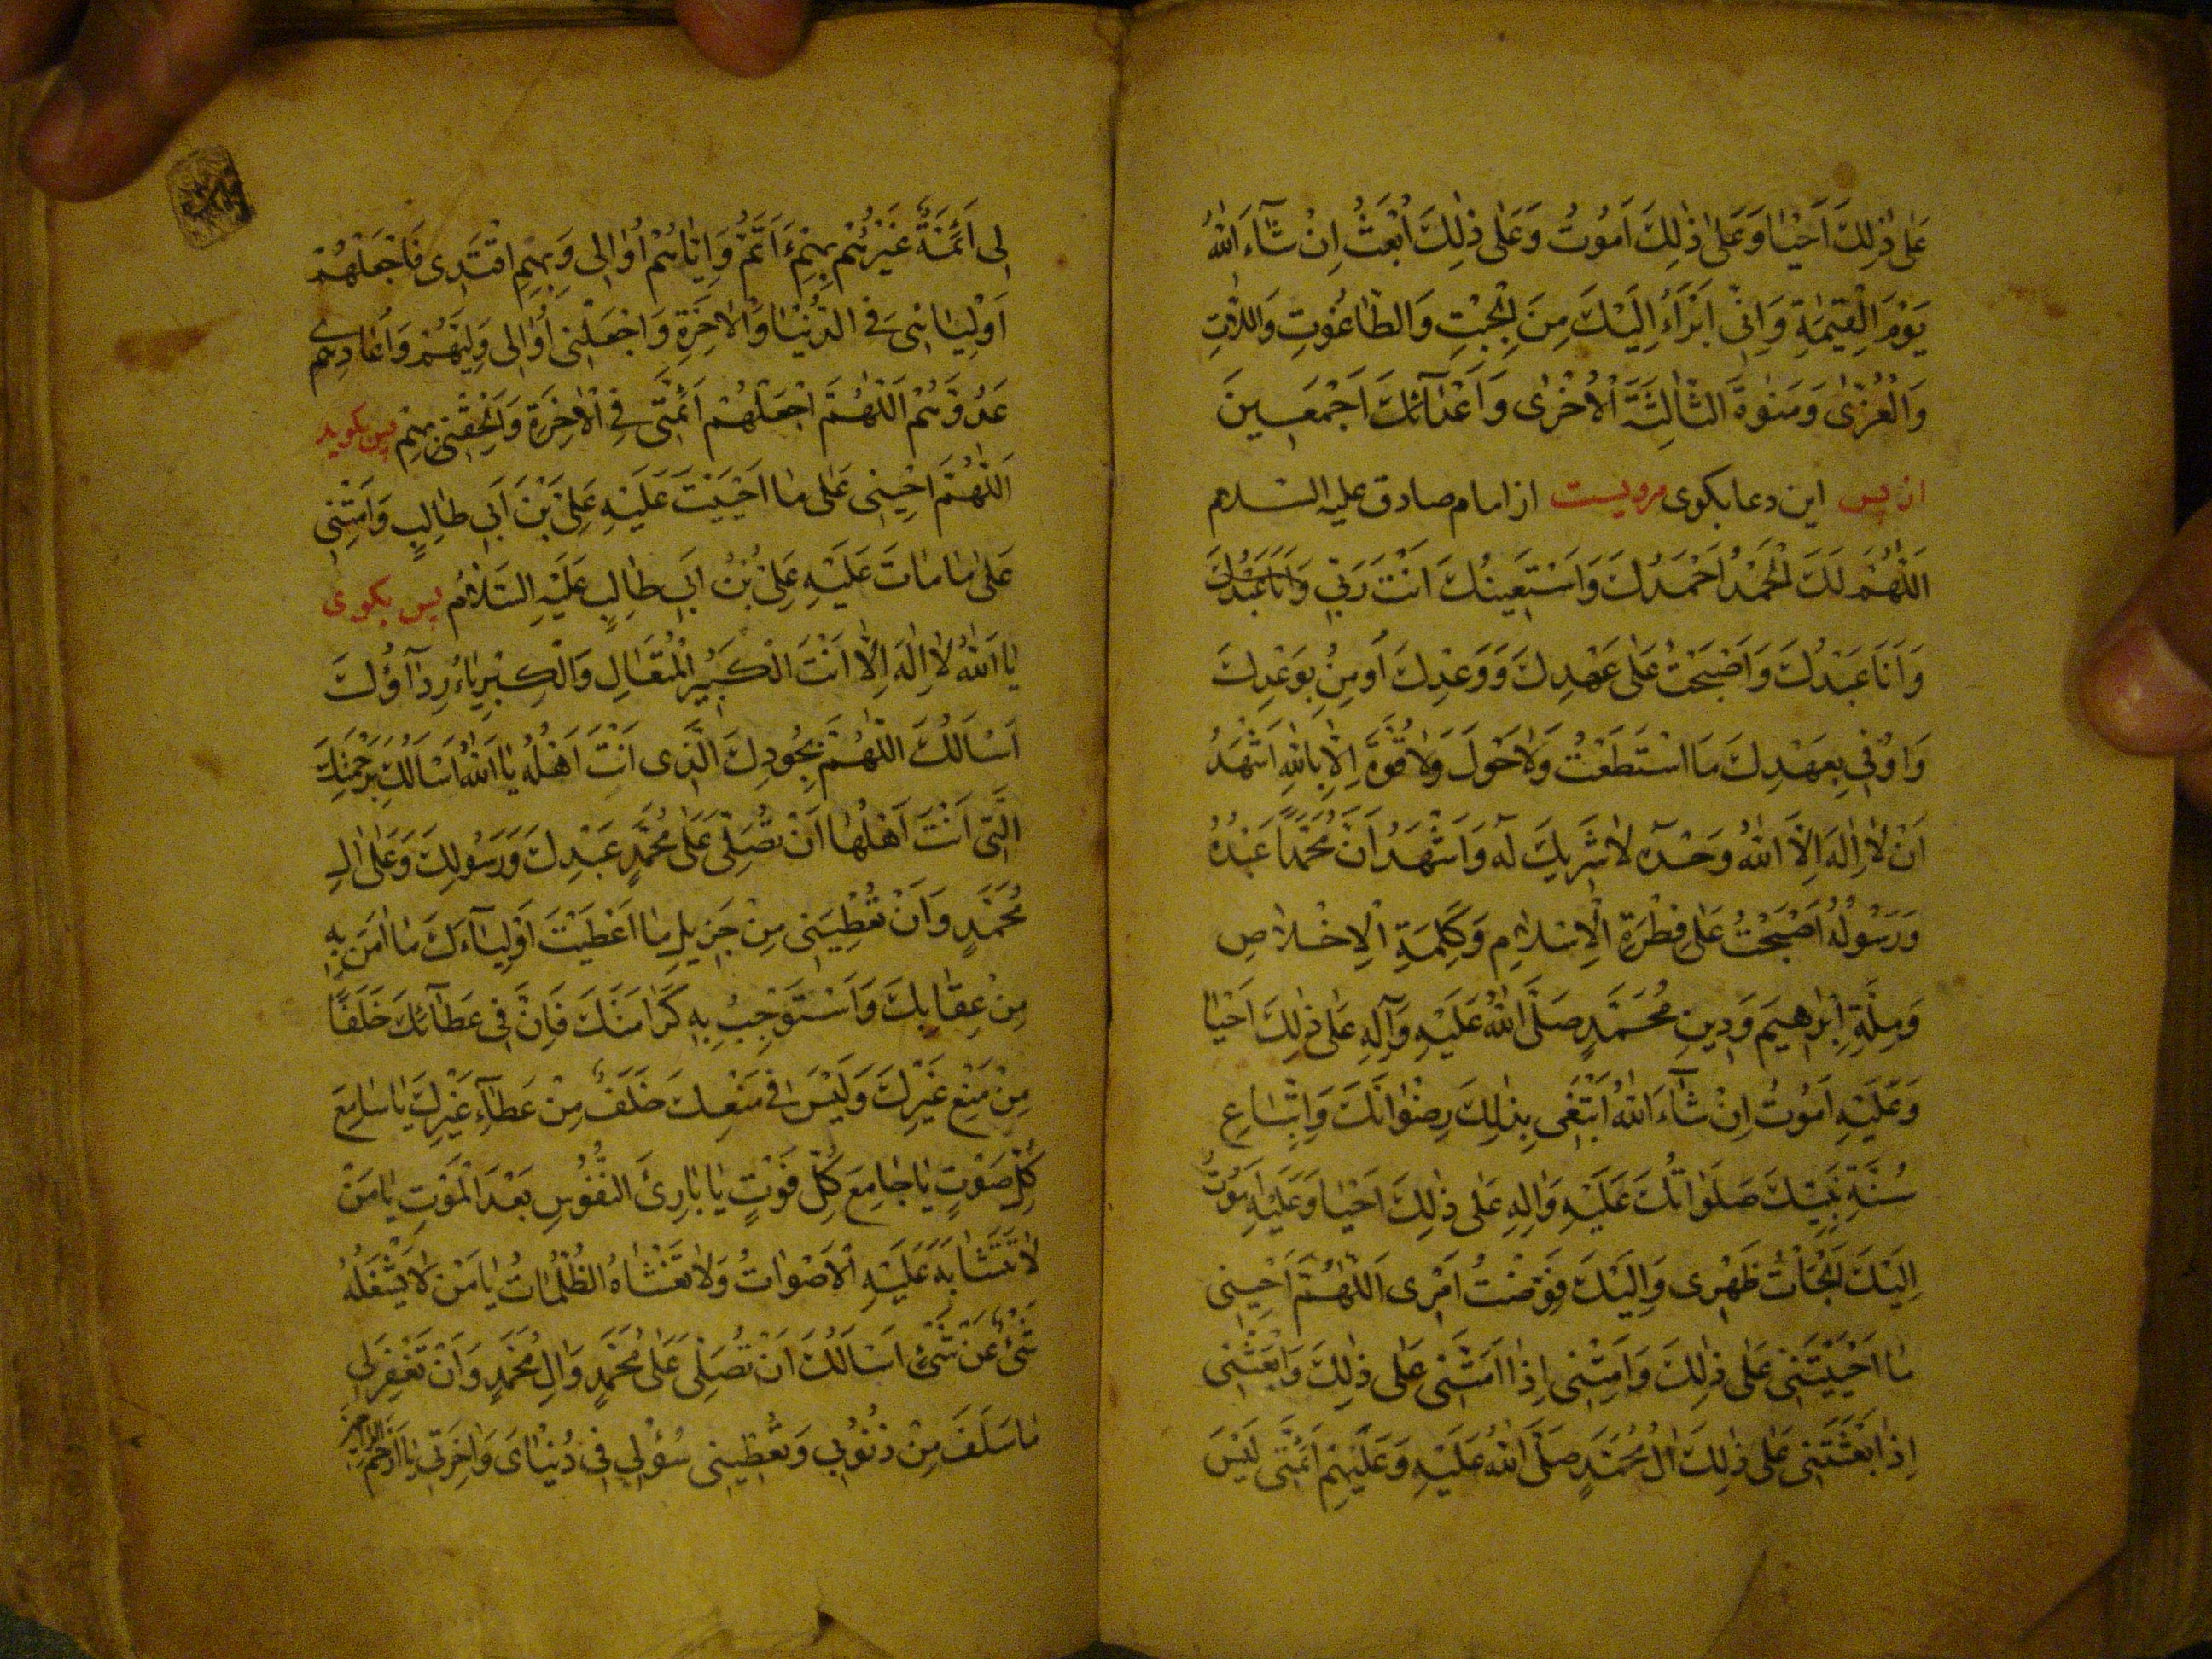 عَلى ذٰلِكَ اَحْيٰا وَعَلىٰ ذٰلِكَ اَمُوْتُ وَعَلى ذٰلِكَ اُبْعَثُ اِنْ شآءَ اللّٰهُ
يَوْمَ الْقِيٰمَةِ وَاِنّى اَبْرَاُ اِلَيْكَ مِنَ الْجِبْتِ وَالطّاغُوْتِ وَاللّاتِ
وَالْعُزّىٰ وَمَنٰوةَ الثّالِثَةَ الْاُخْرٰى وَاَعْدآئِكَ اَجْمَعينَ
از پس اين دعا بكوى مرويست از امام صادق عليه السلام
اَللّٰهُمَّ لَكَ الْحَمْدُ اَحْمَدُكَ وَاَسْتَعينُكَ اَنْتَ رَبّى وَاَنَا عَبْدُكَ
وَاَنَا عَبْدُكَ وَاَصْبَحْتُ عَلى عَهْدِكَ وَوَعْدِكَ اُومِنُ بِوَعْدِكَ
وَاُوْفى بِعَهْدِكَ مَا اسْتَطَعْتُ وَلاحَوْلَ وَلاقُوَّةَ اِلّا بِاللّٰهِ اَشْهَدُ
اَنْ لااِلٰهَ اِلَّا اللّٰهُ وَحْدَهُ لاشَريكَ لَهُ وَاَشْهَدُ اَنَّ مُحَمَّداً عَبْدُهُ
وَرَسُوْلُهُ اَصْبَحْتُ عَلى فِطْرَةِ الْاِسْلامِ وَكَلِمَةِ الْاِخْلاصِ
وَمِلَّةِ اِبْرٰهيمَ وَدينِ مُحَمَّدٍ صَلَّى اللّٰهُ عَلَيْهِ وَآلِهِ عَلى ذٰلِكَ اَحْيٰا
وَعَلَيْهِ اَمُوْتُ اِنْ شآءَ اللّٰهُ اَبْتَغى بِذٰلِكَ رِضْوانَكَ وَاتِّباعِ
سُنَّةِ نَبِيِّكَ صَلَواتُكَ عَلَيْهِ وَالِهِ عَلى ذٰلِكَ اَحْيٰا وَعَلَيْهِ اَمُوْتُ
اِلَيْكَ اَلْجَأْتُ ظَهْرى وَاِلَيْكَ فَوَّضْتُ اَمْرى اَللّٰهُمَّ اَحْيِنى
مٰا اَحْيَيْتَنى عَلى ذٰلِكَ وَاَمِتْنى اِذا اَمَتَّنى عَلى ذٰلِكَ وَابْعَثْنى
اِذا بَعَثْتَنى عَلى ذٰلِكَ الُ مُحَمَّدٍ صَلَّى اللّٰهُ عَلَيْهِ وَعَلَيْهِمْ اَئِمَّتى لَيْسَ
لى اَئِمَّةٌ غَيْرُهُمْ بِهِمْ اَئْتَمُّ وَاِيّاهُمْ اُوٰالى وَبِهِمْ اَقْتَدى فَاجْعَلْهُمْ
اَوْلِيٰائى فى الدُّنْيٰا وَالْاٰخِرَةِ وَاجْعَلْنى اُوٰالى وَلِيَّهُمْ وَاُعٰادى
عَدُوَّهُمْ اَللّٰهُمَّ اجْعَلْهُمْ اَئِمَّتى فى الْاٰخِرَةِ وَاَلْحِقْنى بِهِمْ پس بكويد
اَللّٰهُمَّ اَحْيِنى عَلى مٰا اَحْيَيْتَ عَلَيْهِ عَلِىَّ بْنَ اَبى طٰالِبٍ وَاَمِتْنى
عَلى مٰا مٰاتَ عَلَيْهِ عَلِىُّ بْنُ اَبى طٰالِبٍ عَلَيْهِ السَّلامُ پس بكوى
يٰا اَللّٰهُ لااِلٰهَ اِلّا اَنْتَ الْكَبيرُ الْمُتَعٰالِ وَالْكِبْرِيٰاءُ رِدآؤُكَ
اَسْاَلُكَ اللّٰهُمَّ بِجُودِكَ الَّذى اَنْتَ اَهْلُهُ يٰا اَللّٰهُ اَسْاَلُكَ بِرَحْمَتِكَ
الَّتى اَنْتَ اَهْلُهٰا اَنْ تُصَلِّىَ عَلى مُحَمَّدٍ عَبْدِكَ وَرَسُولِكَ وَعَلى الِ
مُحَمَّدٍ وَاَنْ تُعْطِيَنى مِنْ جَزيلِ مٰا اَعْطَيْتَ اَوْلِيٰآءَكَ مٰا اٰمَنُ بِهِ
مِنْ عِقٰابِكَ وَاَسْتَوْجِبُ بِهِ كَرٰامَتَكَ فَاِنَّ فى عَطآئِكَ خَلَفًا
مِنْ مَنْعِ غَيْرِكَ وَلَيْسَ فى مَنْعِكَ خَلَفٌ مِنْ عَطآءِ غَيْرِكَ يٰا سٰامِعَ
كُلِّ صَوْتٍ يٰا جٰامِعَ كُلِّ فَوْتٍ يٰا بٰارِئَ النُّفُوْسِ بَعْدَ الْمَوْتِ يٰا مَنْ
لاتَتَشٰابَهُ عَلَيْهِ الْاَصْوٰاتُ وَلاتَغْشٰاهُ الظُّلُمٰاتُ يٰا مَنْ لايَشْغَلُهُ
شَىْءٌ عَنْ شَىْءٍ اَسْاَلُكَ اَنْ تُصَلِّىَ عَلى مُحَمَّدٍ وَالِ مُحَمَّدٍ وَاَنْ تَغْفِرَ لى
مٰا سَلَفَ مِنْ ذُنُوْبى وَتُعْطِيَنى سُؤْلى فى دُنْيٰاىَ وَاٰخِرَتى يٰا اَرْحَمَ الراحمين